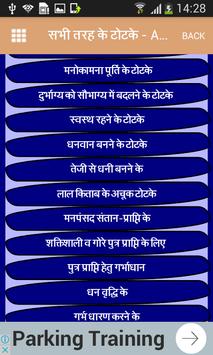 14:28
सभी तरह के टोटके - A...
BACK
मनोकामना पूर्ति के टोटके
दुर्भाग्य को सौभाग्य में बदलने के टोटके
स्वस्थ रहने के टोटके
धनवान बनने के टोटके
तेजी से धनी बनने के
लाल किताब के अचूक टोटके
मनपंसद संतान-प्राप्ति के
शक्तिशाली व गोरे पुत्र प्राप्ति के लिए
पुत्र प्राप्ति हेतु गर्भाधान
धन वृद्धि के
गर्भ धारण करने के
Parking Training